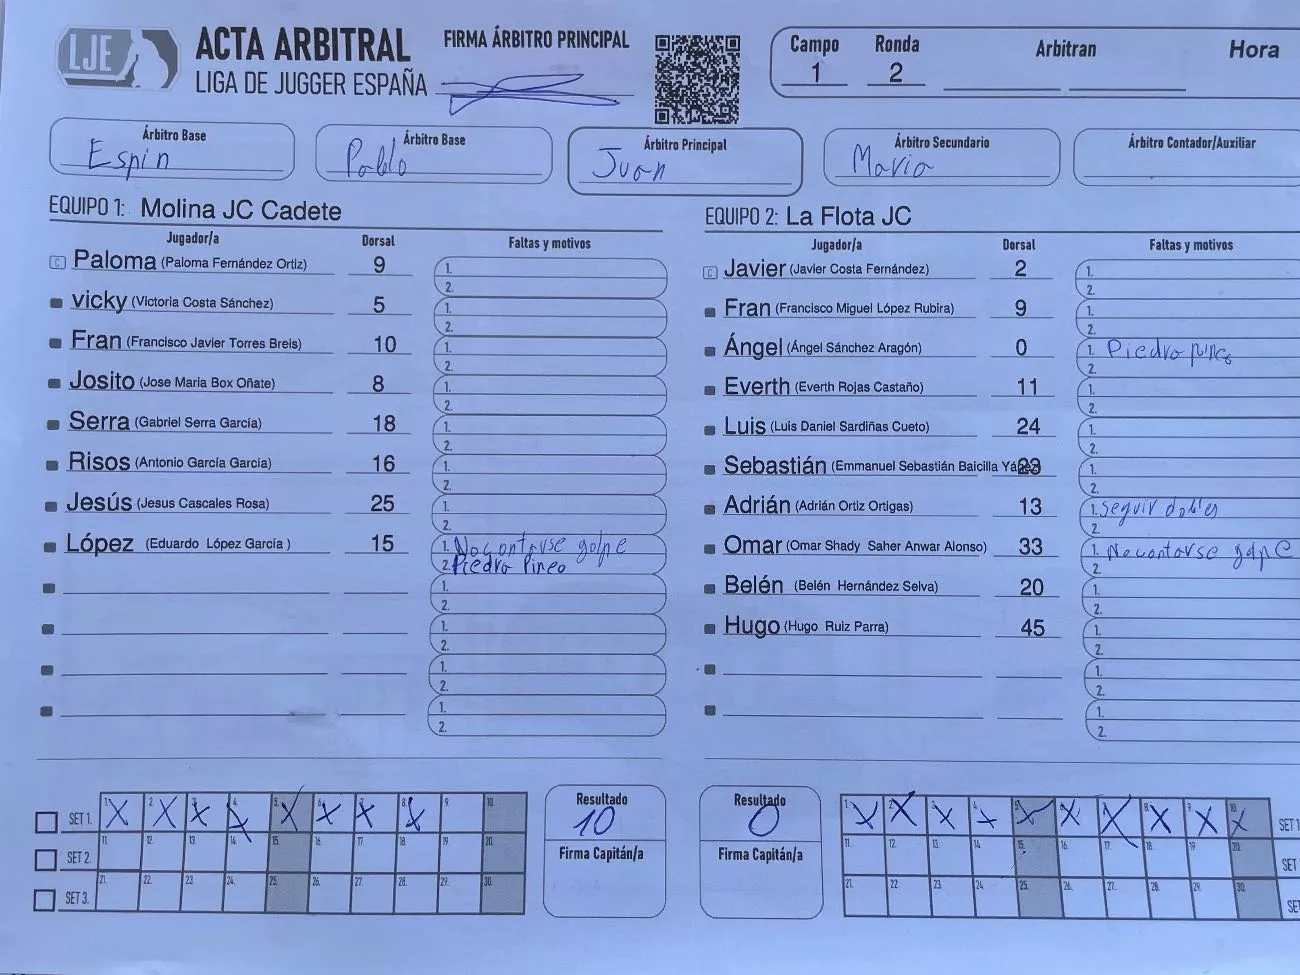 LJE
ACTA ARBITRAL
LIGA DE JUGGER ESPAÑA
FIRMA ÁRBITRO PRINCIPAL
Campo 1
Ronda 2
Arbitran
Hora
Árbitro Base
Espin
Árbitro Base
Pablo
Árbitro Principal
Juan
Árbitro Secundario
Maria
Árbitro Contador/Auxiliar
EQUIPO 1: Molina JC Cadete
Jugador/a Dorsal Faltas y motivos
C Paloma (Paloma Fernández Ortiz) 9 1. 2.
vicky (Victoria Costa Sánchez) 5 1. 2.
Fran (Francisco Javier Torres Breis) 10 1. 2.
Josito (Jose Maria Box Oñate) 8 1. 2.
Serra (Gabriel Serra García) 18 1. 2.
Risos (Antonio García García) 16 1. 2.
Jesús (Jesus Cascales Rosa) 25 1. 2.
López (Eduardo López García ) 15 1. No contarse golpe
2. Piedra Pineo
1. 2.
1. 2.
1. 2.
1. 2.
EQUIPO 2: La Flota JC
Jugador/a Dorsal Faltas y motivos
C Javier (Javier Costa Fernández) 2 1. 2.
Fran (Francisco Miguel López Rubira) 9 1. 2.
Ángel (Ángel Sánchez Aragón) 0 1. Piedra pineo
2.
Everth (Everth Rojas Castaño) 11 1. 2.
Luis (Luis Daniel Sardiñas Cueto) 24 1. 2.
Sebastián (Emmanuel Sebastián Baicilla 23 1. 2.
Adrián (Adrián Ortiz Ortigas) 13 1. Seguir dobles
2.
Omar (Omar Shady Saher Anwar Alonso) 33 1. No contarse golpe
2.
Belén (Belén Hernández Selva) 20 1. 2.
Hugo (Hugo Ruiz Parra) 45 1. 2.
1. 2.
1. 2.
SET 1. 1. X 2. X 3. X 4. X 5. X 6. X 7. X 8. X 9. 10.
SET 2. 11. 12. 13. 14. 15. 16. 17. 18. 19. 20.
SET 3. 21. 22. 23. 24. 25. 26. 27. 28. 29. 30.
Resultado
10
Firma Capitán/a
Resultado
0
Firma Capitán/a
1. X 2. X 3. X 4. X 5. X 6. X 7. X 8. X 9. X 10. X SET 1
11. 12. 13. 14. 15. 16. 17. 18. 19. 20. SET
21. 22. 23. 24. 25. 26. 27. 28. 29. 30. SE